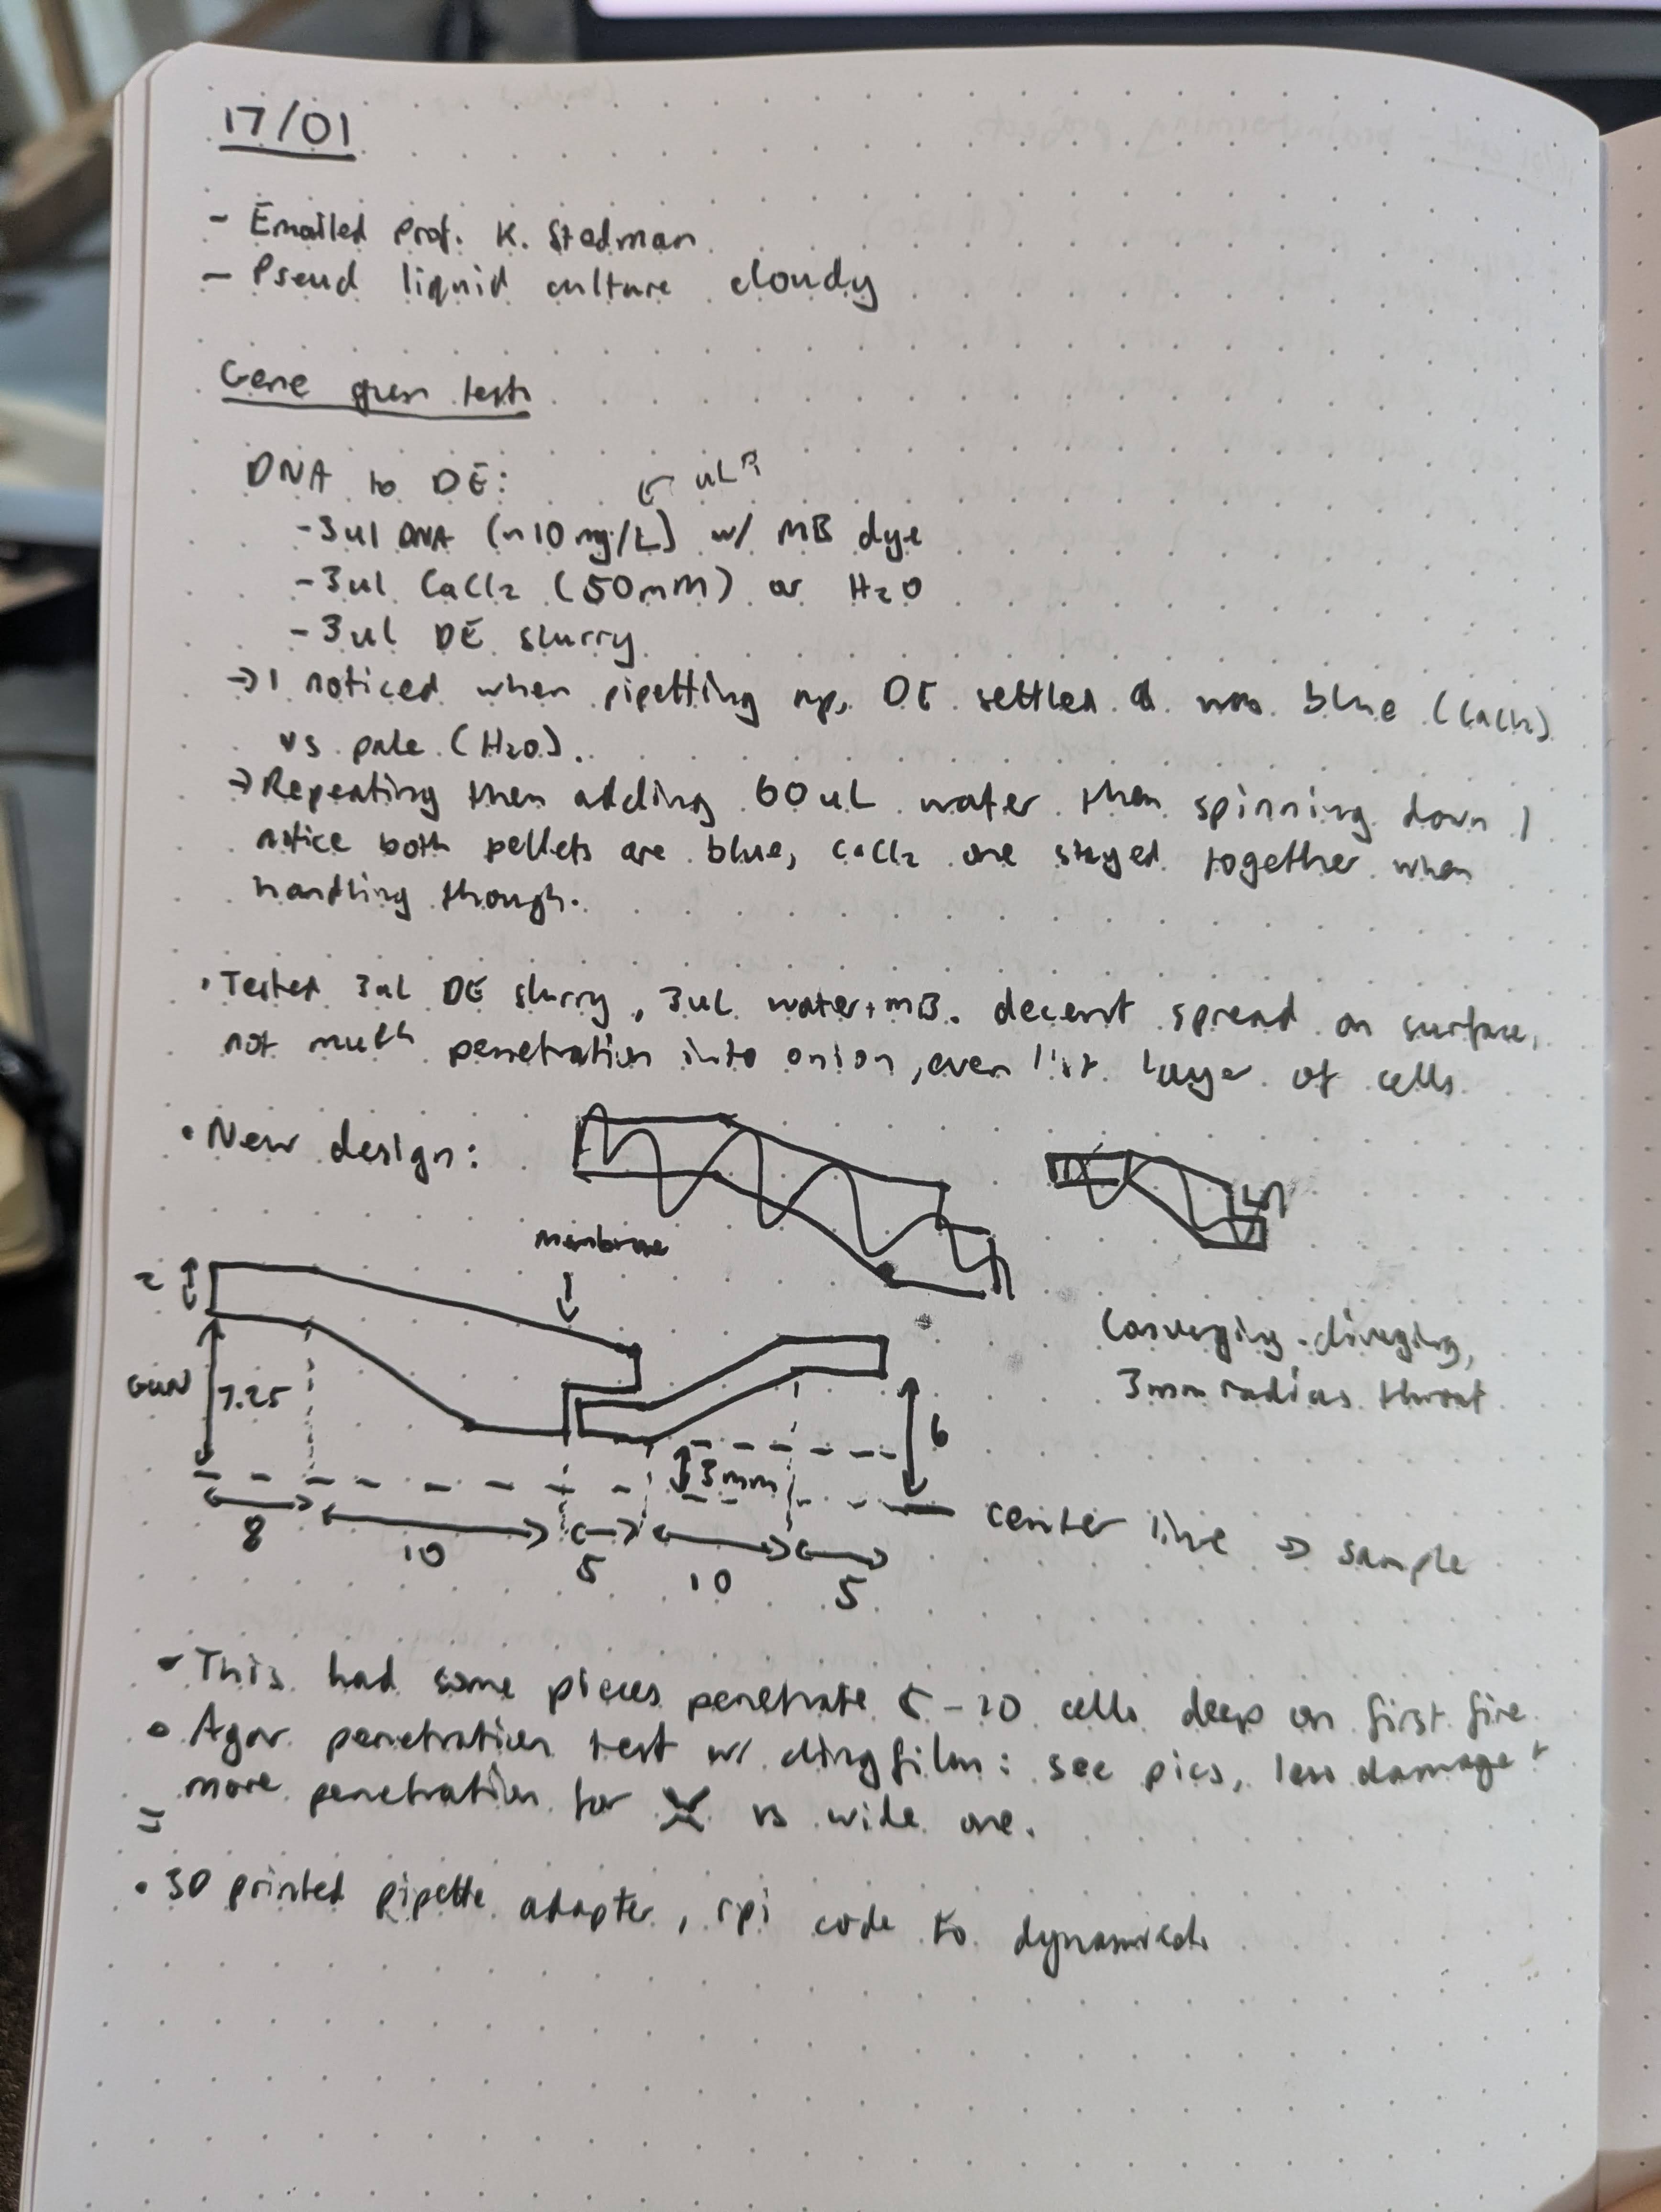 17/01
- Emailed Prof. K. Stedman
- Pseud liquid culture cloudy
Gene gun tests
DNA to DE:
uL?
- 3ul DNA (~10ng/L) w/ MB dye
- 3ul CaCl2 (50mM) or H2O
- 3ul DE slurry
→ I noticed when pipetting up, DE settled & was blue (CaCl2)
vs pale (H2O).
→ Repeating then adding 60uL water then spinning down I
notice both pellets are blue, CaCl2 one stayed together when
handling though.
• Tested 3uL DE slurry, 3uL water+MB. decent spread on surface,
not much penetration into onion, even 1st layer of cells
• New design:
membrane
2
GUN
7.25
Converging-diverging,
3mm radius throat
6
3mm
center line → sample
8
10
5
10
5
• This had some pieces penetrate 5-10 cells deep on first fire
• Agar penetration test w/ clingfilm: see pics, less damage +
more penetration for vs wide one.
• 3D printed pipette adapter, rpi code to